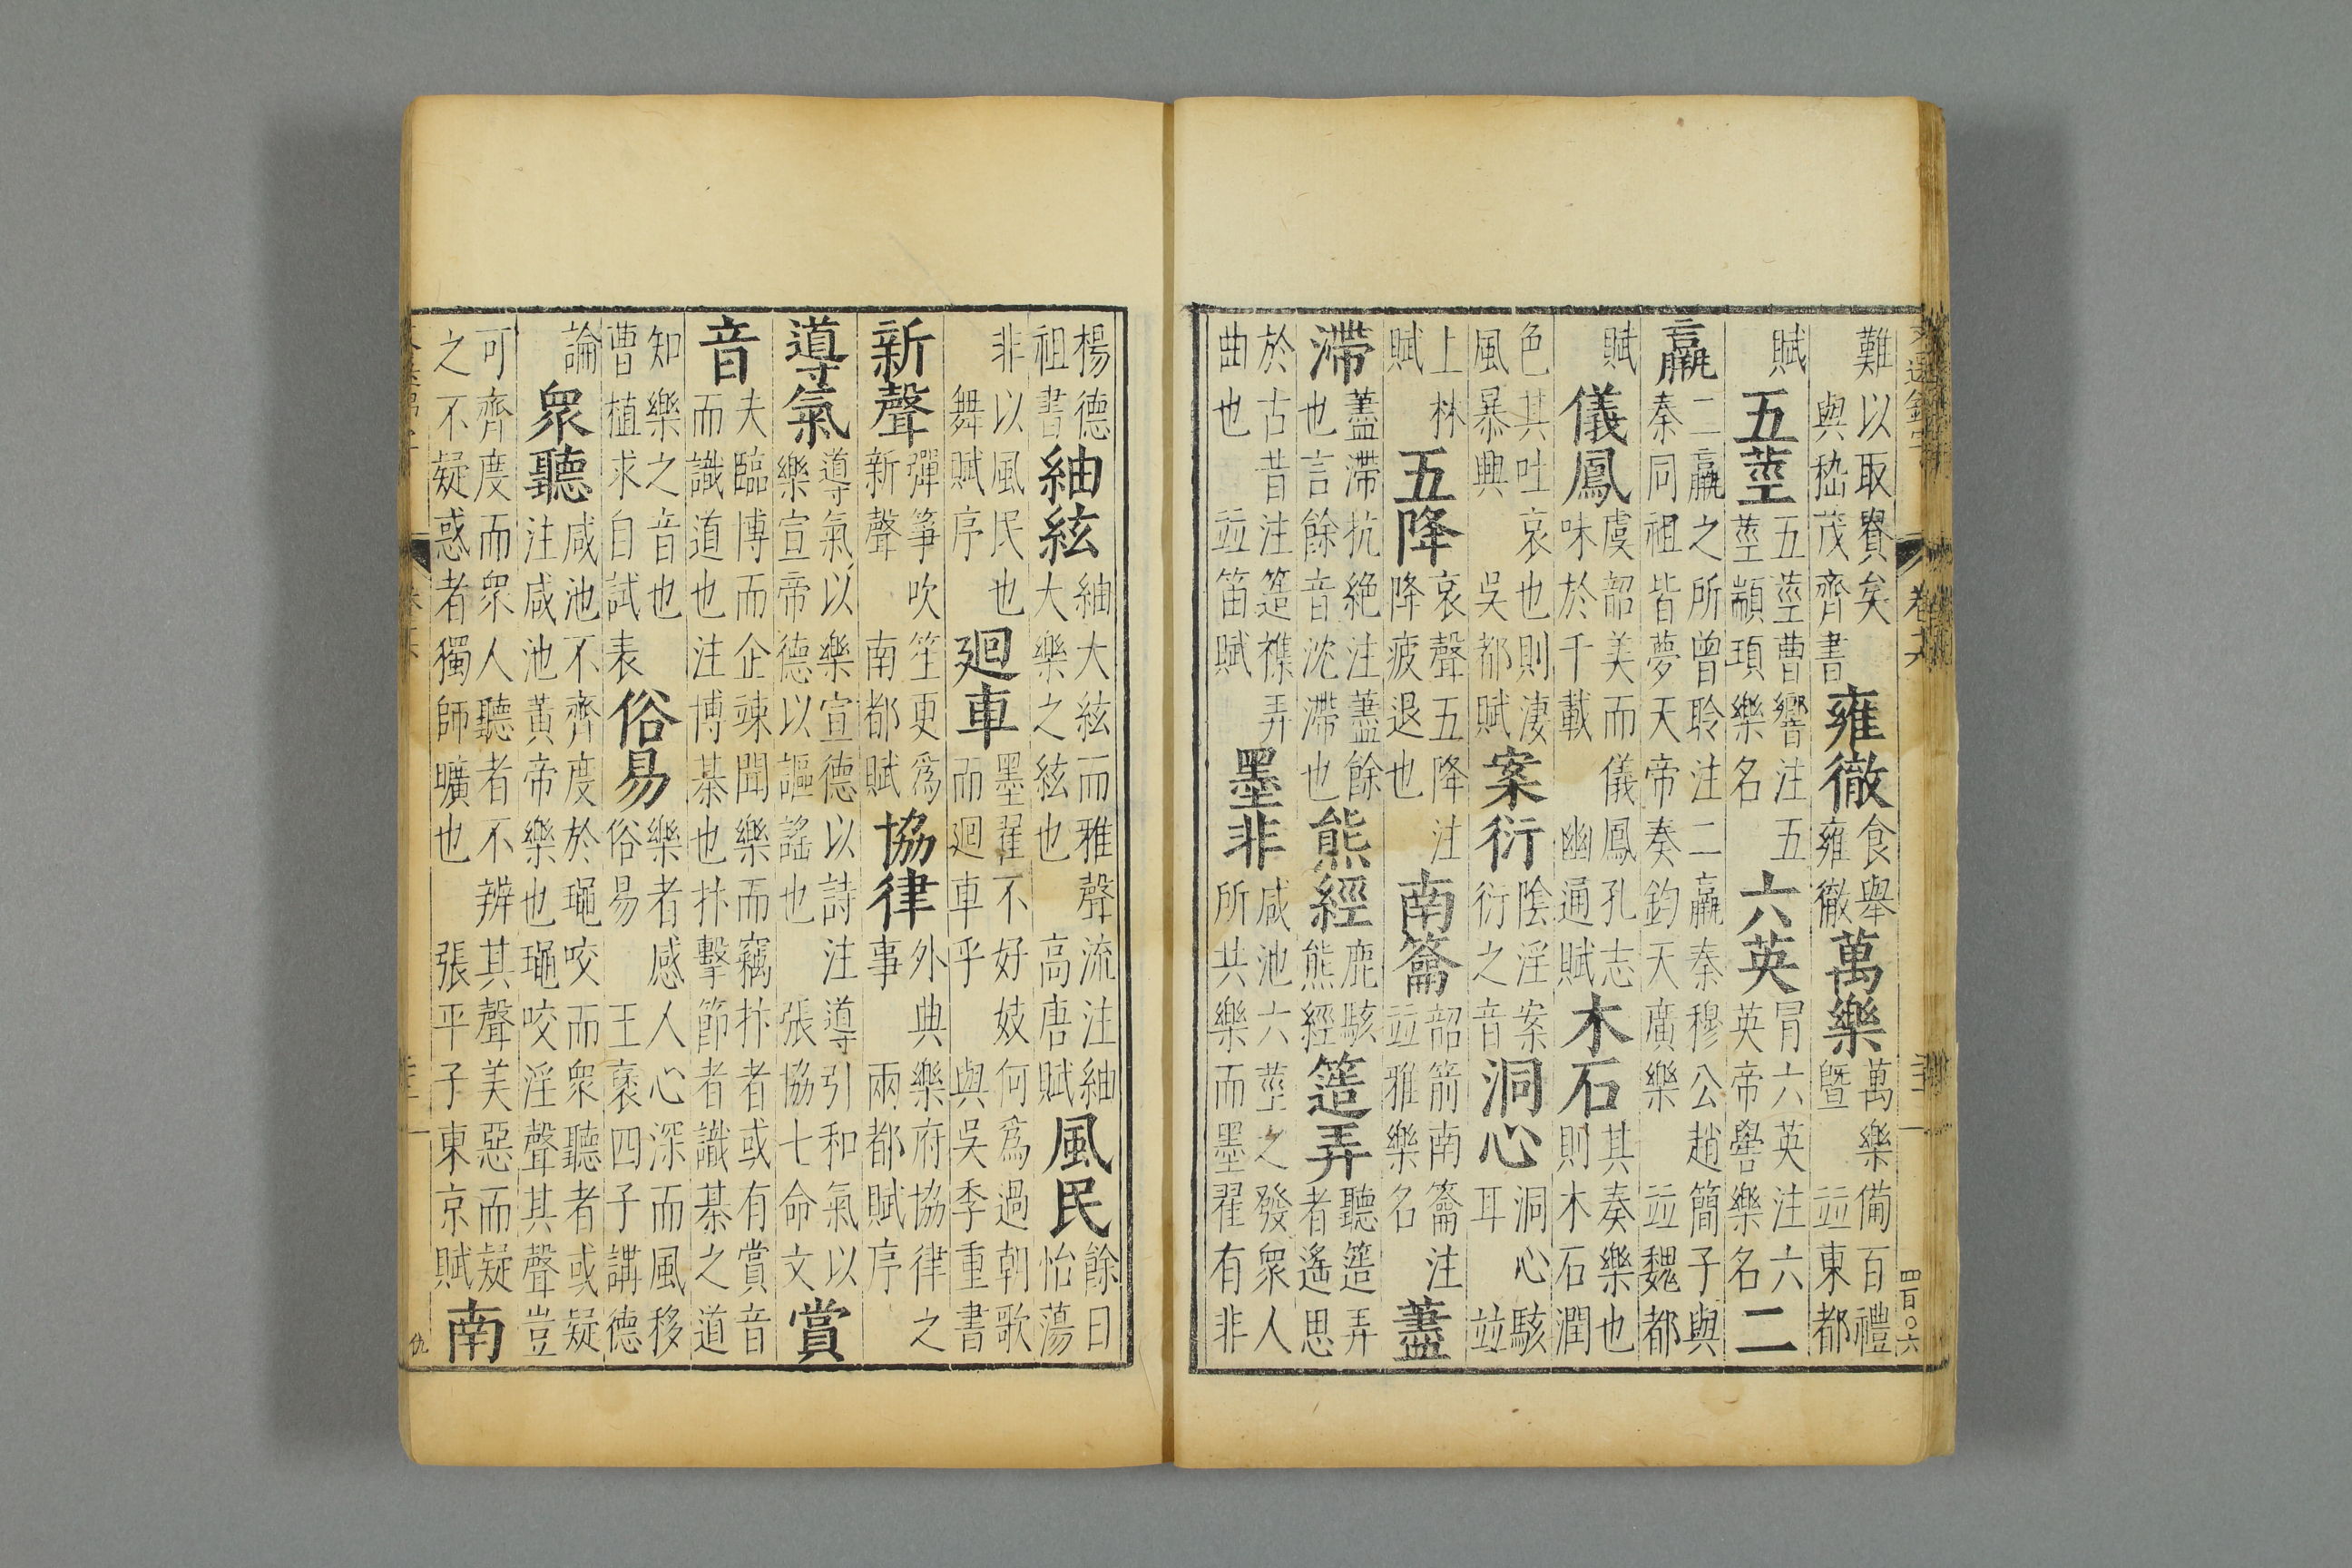 難以取賚矣與嵇茂齊書雍徹食舉雍徹萬樂萬樂備百禮暨並東都
賦五莖五莖曹響注五莖顓頊樂名六英冐六英注六英帝嚳樂名二
嬴二嬴之所曾聆注二嬴秦穆公趙簡子與秦同祖皆夢天帝奏鈞天廣樂並魏都
賦儀鳳虞韶美而儀鳳孔志味於千載幽通賦木石其奏樂也則木石潤
色其吐哀也則淒風暴興吳都賦案衍陰淫案衍之音洞心洞心駭耳並
上林賦五降哀聲五降注降疲退也南籥韶箾南籥注並雅樂名藎
滯藎滯抗絶注藎餘也言餘音沈滯也熊經鹿駭熊經簉弄聽簉弄者遙思
於古昔注簉襍弄曲也並笛賦墨非咸池六莖之發衆人所共樂而墨翟有非
卷六
四百〇六
楊德祖書紬絃紬大絃而雅聲流注紬大樂之絃也高唐賦風民餘曰怡蕩
非以風民也舞賦序迴車墨翟不好妓何爲過朝歌而迴車乎與吳季重書
新聲彈箏吹笙更爲新聲南都賦協律外典樂府協律之事兩都賦序
導氣導氣以樂宣德以詩注導引和氣以樂宣帝德以謳謠也張協七命文賞
音夫臨博而企竦聞樂而竊抃者或有賞音而識道也注博棊也抃擊節者識棊之道
知樂之音也曹植求自試表俗易樂者感人心深而風移俗易王褒四子講德
論衆聽咸池不齊度於咬而衆聽者或疑注咸池黃帝樂也咬淫聲其聲豈
可齊度而衆人聽者不辨其聲美惡而疑之不疑惑者獨師曠也張平子東京賦南